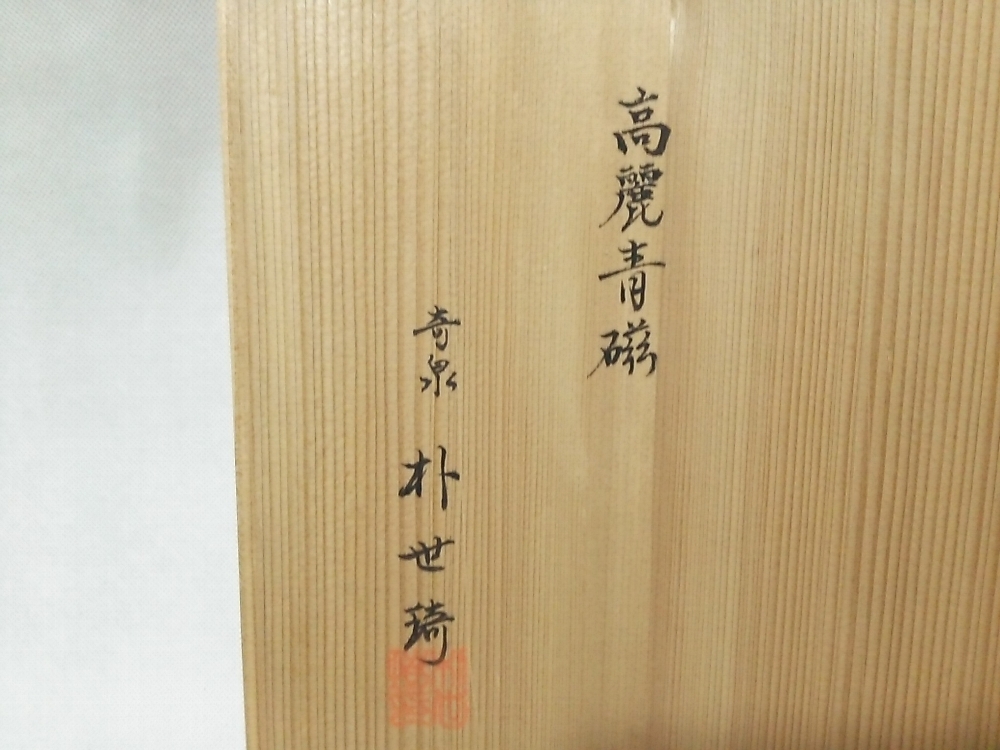 高麗青磁
奇泉 朴世琦